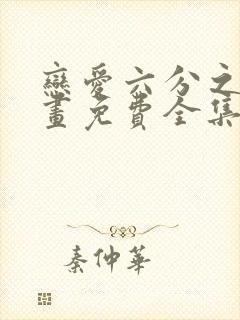 戀愛六分之
畫免費全集
秦仲華